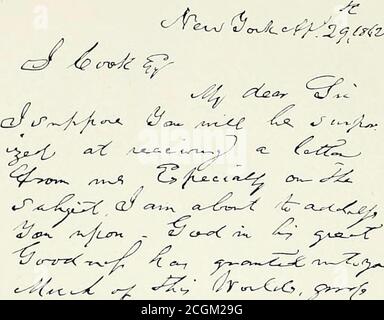 New York Ap. 29th, 1862
J Cook Esq
My dear Sir
I suppose You will be surpri
ized at receiving a letter
from me Especially on the
Subject I am about to address
You upon - God in his great
Goodness has granted unto you
Much of this Worlds, goods
alamy
2CGM29G